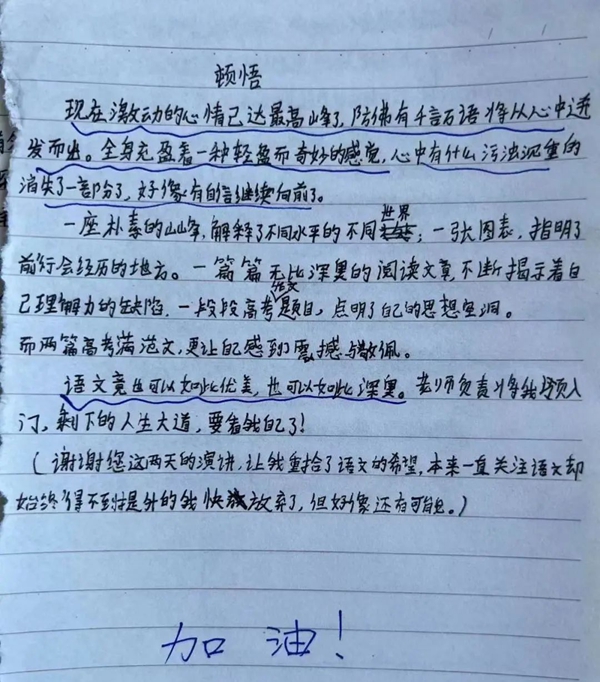 顿悟
现在激动的心情已达最高峰了,仿佛有千言万语将从心中迸
发而出。全身充盈着一种轻盈而奇妙的感觉,心中有什么污浊沉重的
消失了一部分了,好像有自信继续向前了。
一座朴素的山峰,解释了不同水平的不同世界;一张图表,指明了
前行会经历的地方。一篇篇无比深奥的阅读文章不断揭示着自
己理解力的缺陷,一段段高考语文题目,点明了自己的思想空洞。
而两篇高考满范文,更让自己感到震撼与敬佩。
语文竟也可以如此优美,也可以如此深奥。老师负责将我领入
门,剩下的人生大道,要看我自己了!
(谢谢您这两天的演讲,让我重拾了语文的希望,本来一直关注语文却
始终得不到提升的我快放弃了,但好像还有可能。)
加油!